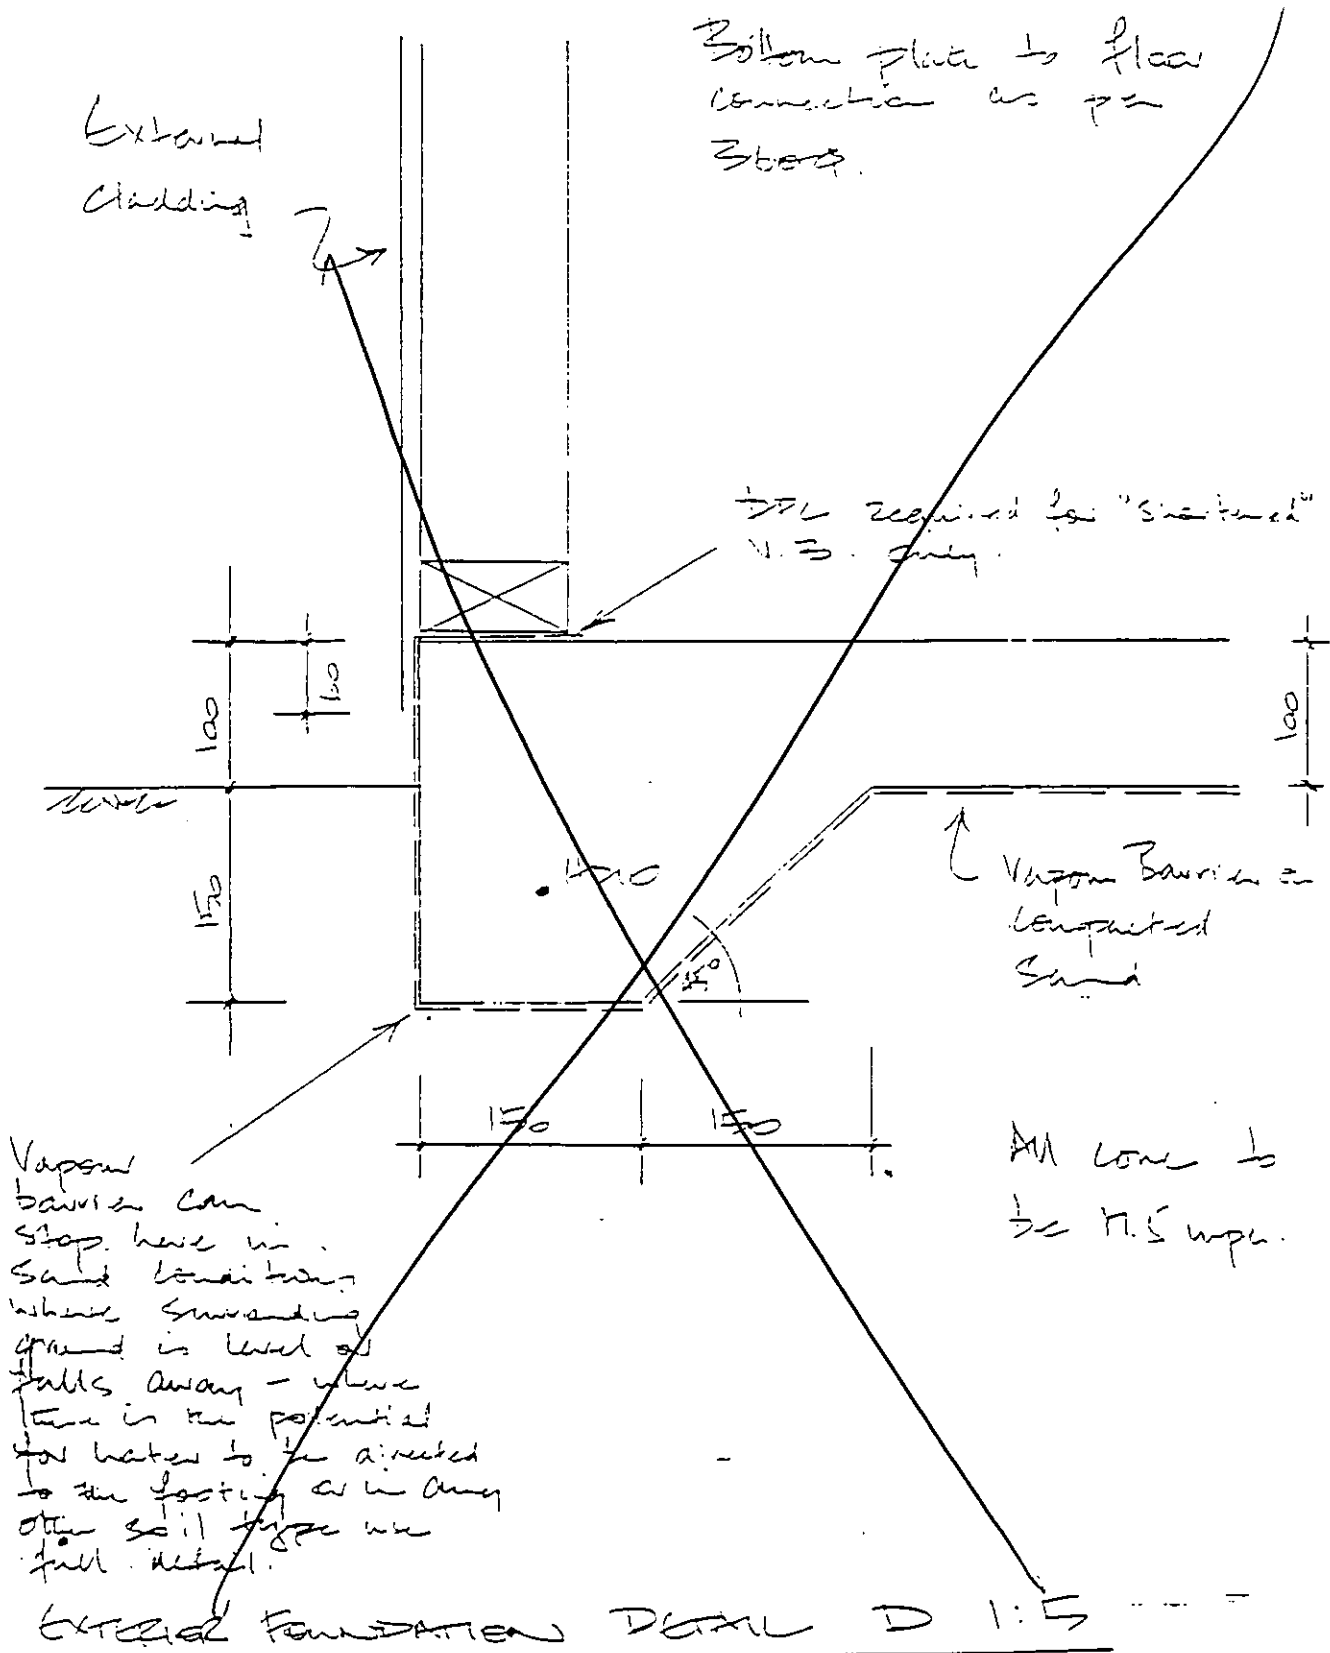 Bottom plate to floor
connection as per
External
Cladding
DPC required for "shortened"
V.B. only.
100
100
150
45°
Vapour Barrier on
Compacted
Sand
150 150
All conc to
be 17.5 mpa.
Vapour
barrier can
stop here in
sand conditions
where surrounding
ground is level or
falls away - where
there is the potential
for water to be directed
to the footing or in any
other soil type use
full detail.
EXTERIOR FOUNDATION DETAIL D 1:5